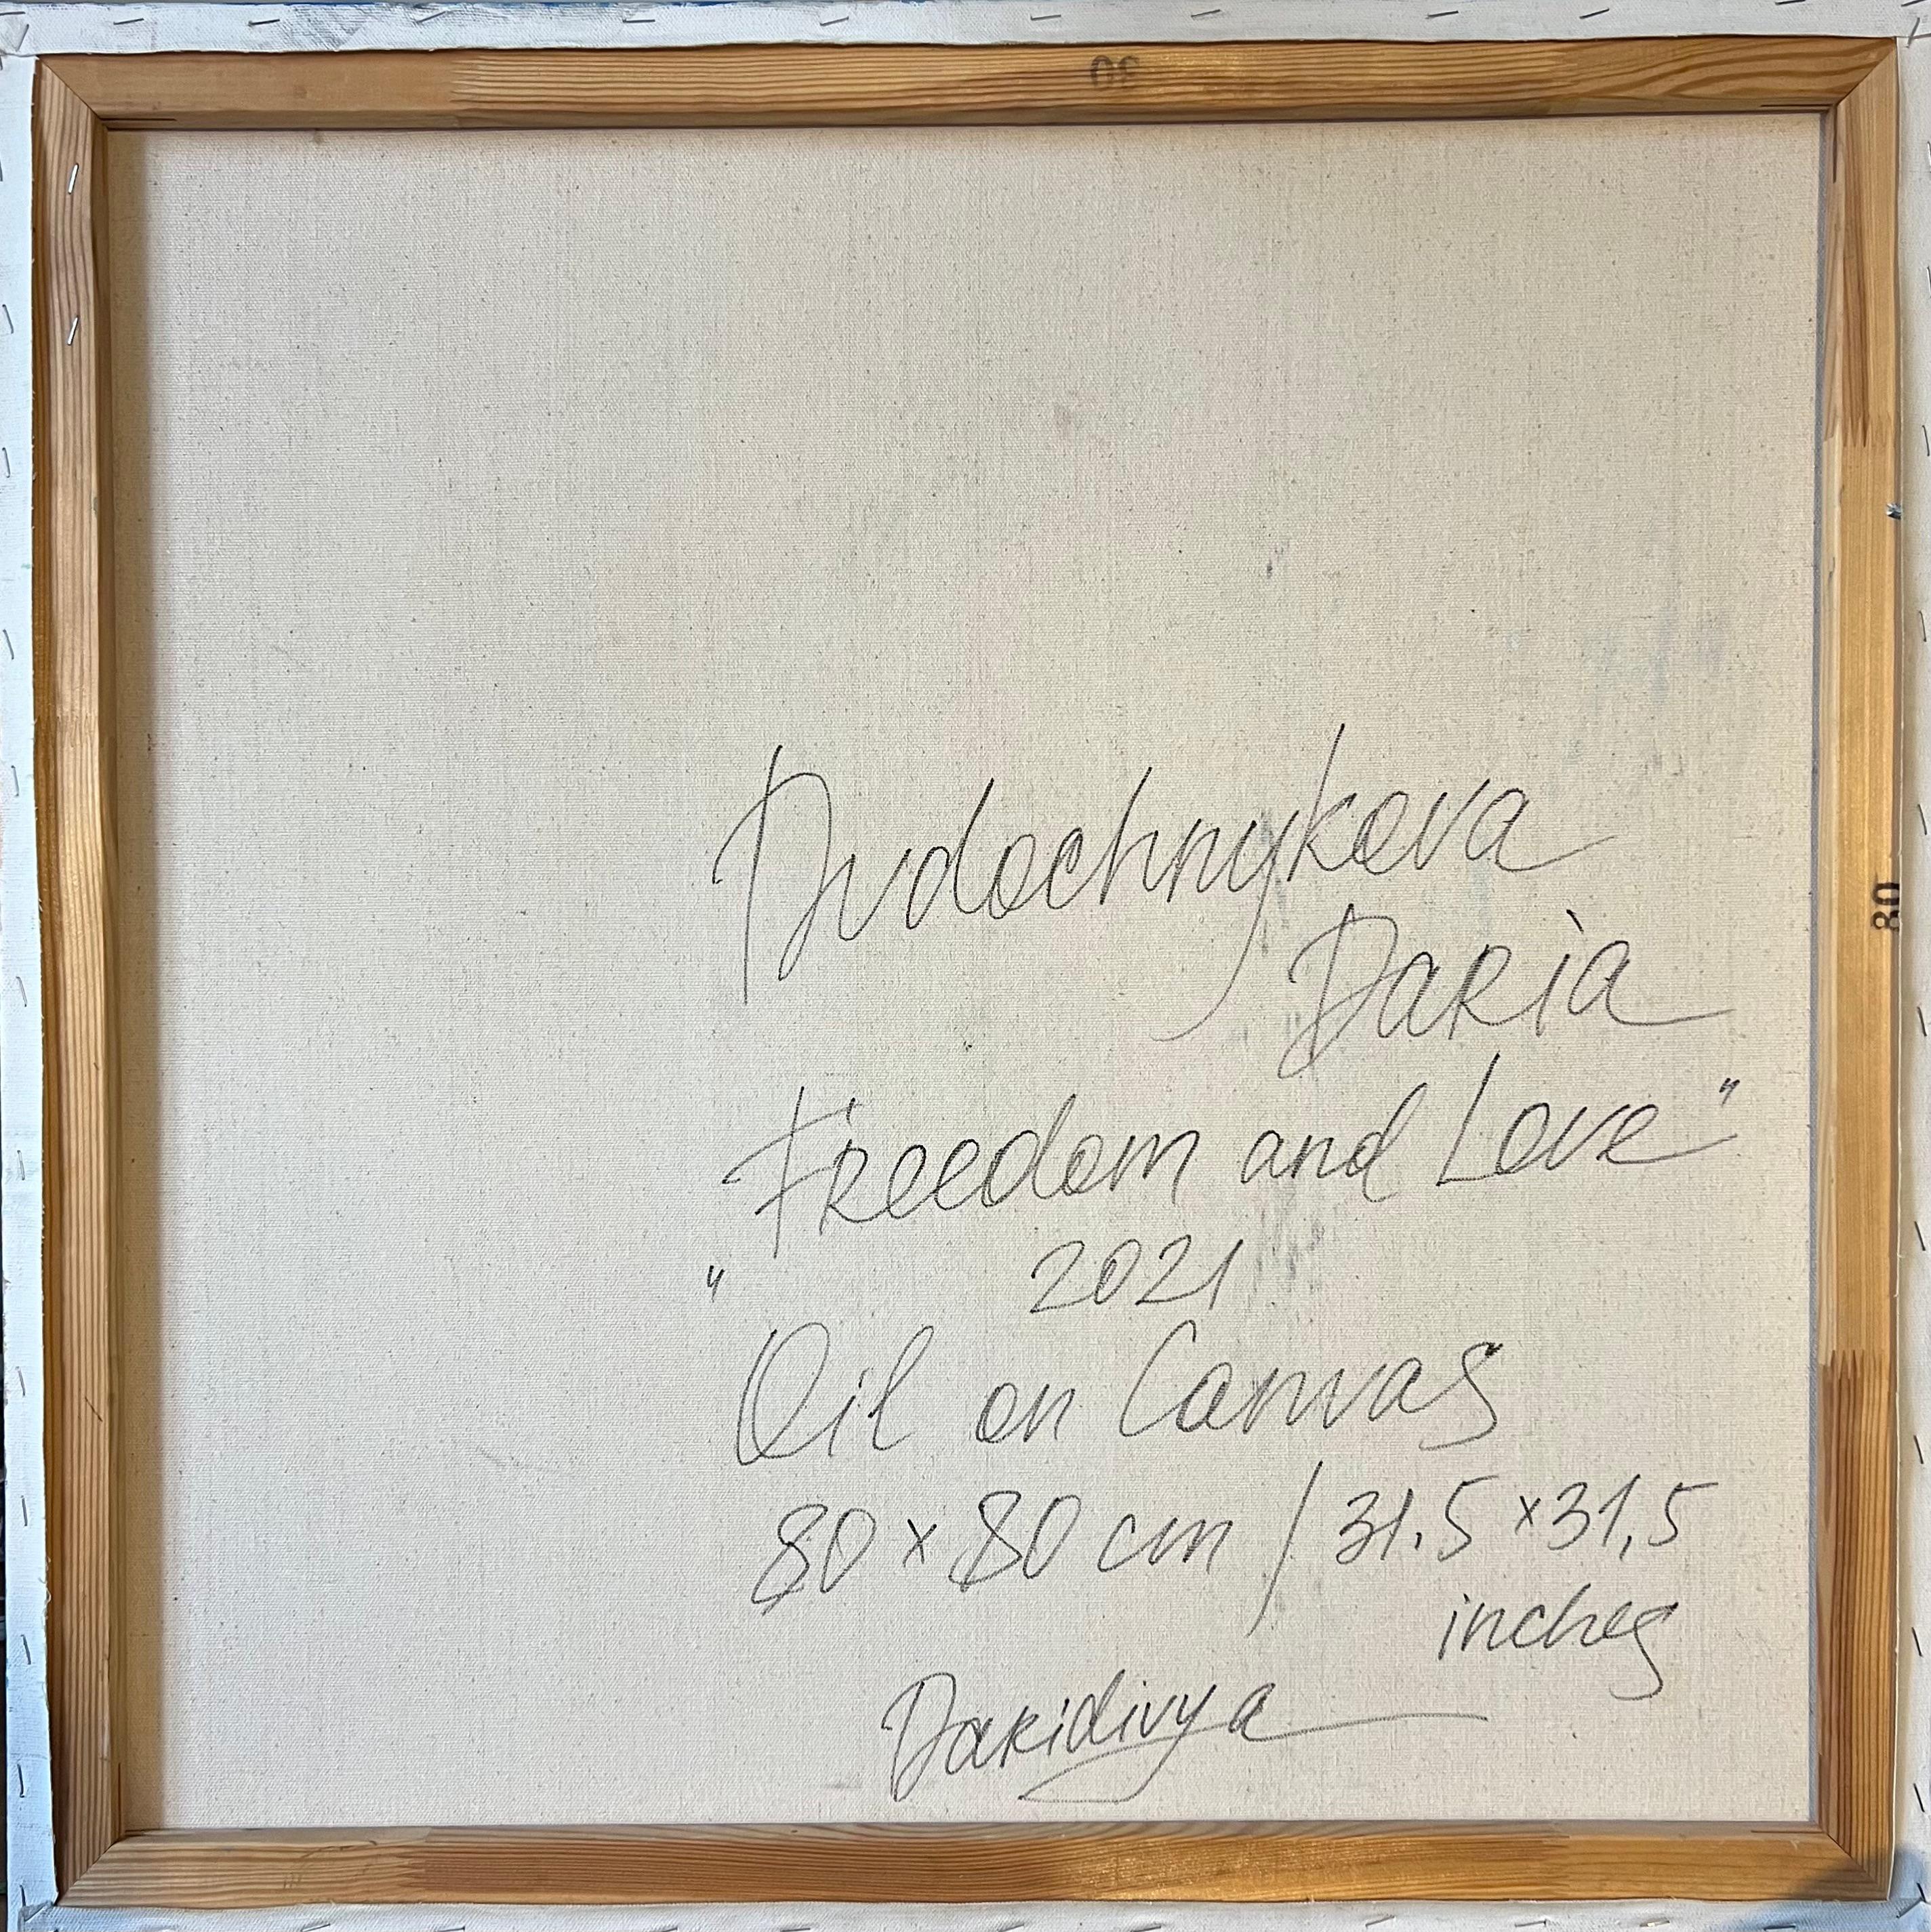 80
Dudochnykova
Daria
80
"Freedom and Love"
2021
Oil on Canvas
80 x 80 cm / 31.5 x 31,5
inches
Daridivya